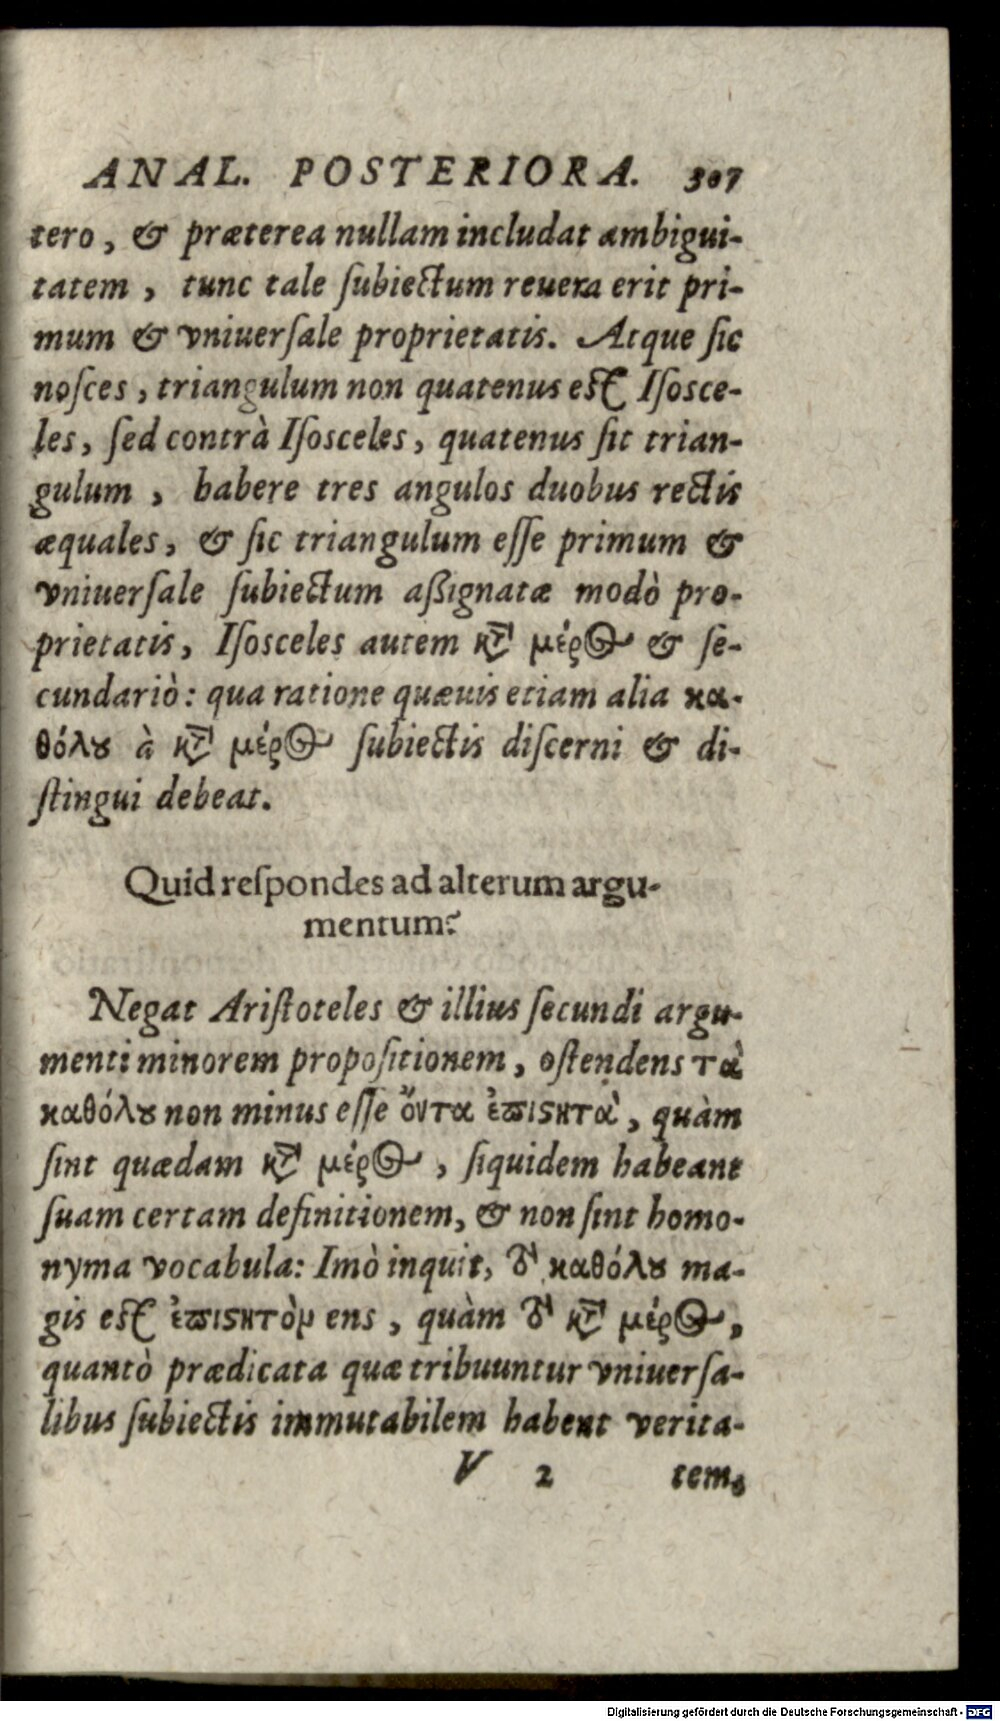 ANAL. POSTERIORA. 307
tero, & præterea nullam includat ambigui-
tatem, tunc tale ſubiectum reuera erit pri-
mum & vniuerſale proprietatis. Atque ſic
noſces, triangulum non quatenus est Iſosce-
les, ſed contrà Iſosceles, quatenus ſit trian-
gulum, habere tres angulos duobus rectis
æquales, & ſic triangulum eſſe primum &
vniuerſale ſubiectum aßignatæ modò pro-
prietatis, Iſosceles autem κτ̀ μέρος & ſe-
cundariò: qua ratione quæuis etiam alia κα-
θόλȣ à κτ̀ μέρος ſubiectis diſcerni & di-
ſtingui debeat.
Quid reſpondes ad alterum argu-
mentum?
Negat Ariſtoteles & illius ſecundi argu-
menti minorem propoſitionem, oſtendens τὰ
καθόλȣ non minus eſſe ὄντα ἐπιϛητὰ, quàm
ſint quædam κτ̀ μέρος, ſiquidem habeant
ſuam certam definitionem, & non ſint homo-
nyma vocabula: Imò inquit, τὸ καθόλȣ ma-
gis est ἐπιϛητὸν ens, quàm τὸ κτ̀ μέρος,
quantò prædicata quæ tribuuntur vniuerſa-
libus ſubiectis immutabilem habent verita-
V 2 tem,
Digitalisierung gefördert durch die Deutsche Forschungsgemeinschaft - DFG